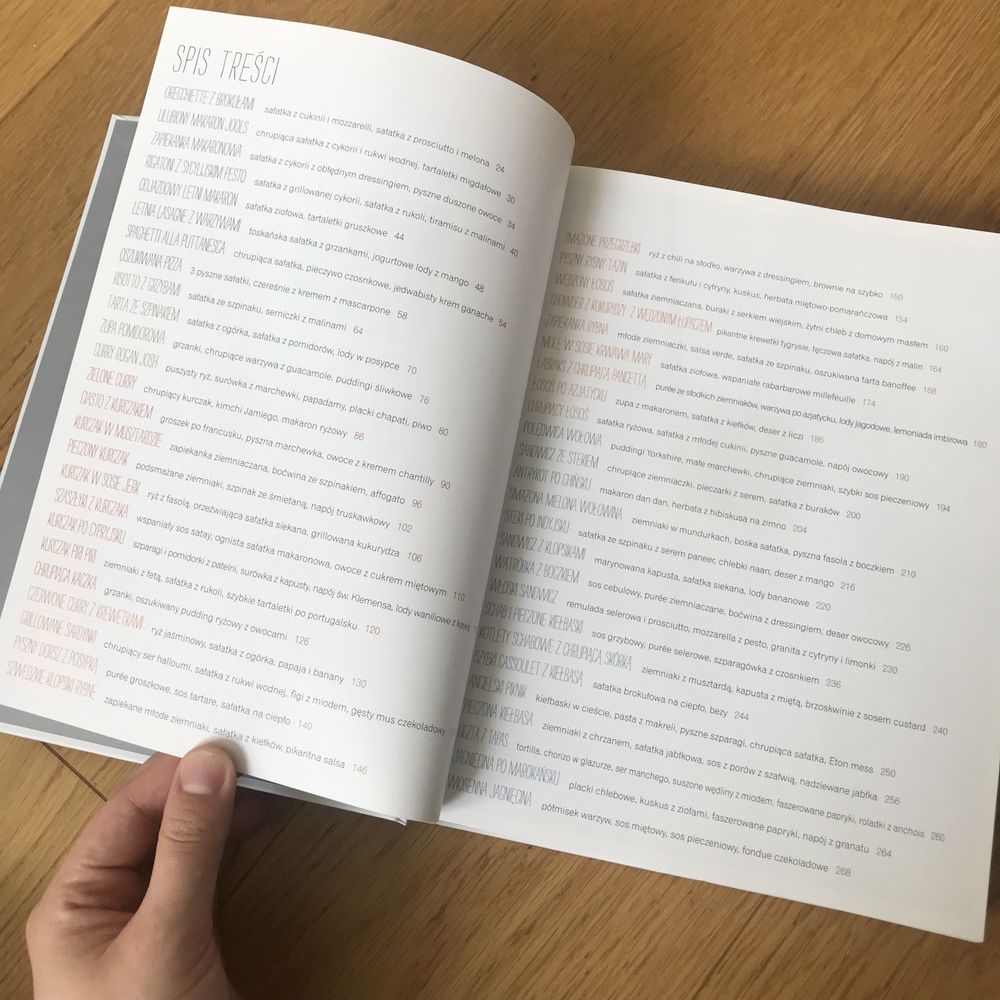 SPIS TREŚCI
ORECCHIETTE Z BROKUŁAMI sałatka z cukinii i mozzarelli, sałatka z prosciutto i melona 24
ULUBIONY MAKARON JOOLS chrupiąca sałatka z cykorii i rukwi wodnej, tartaletki migdałowe 30
ZAPIEKANKA MAKARONOWA sałatka z cykorii z obłędnym dressingiem, pyszne duszone owoce 34
RIGATONI Z SYCYLIJSKIM PESTO sałatka z grillowanej cykorii, sałatka z rukoli, tiramisu z malinami 40
ODJAZDOWY LETNI MAKARON sałatka ziołowa, tartaletki gruszkowe 44
LETNIA LASAGNE Z WARZYWAMI toskańska sałatka z grzankami, jogurtowe lody z mango 48
SPAGHETTI ALLA PUTTANESCA chrupiąca sałatka, pieczywo czosnkowe, jedwabisty krem ganache 54
OSZUKIWANA PIZZA 3 pyszne sałatki, czereśnie z kremem z mascarpone 58
RISOTTO Z GRZYBAMI sałatka ze szpinaku, serniczki z malinami 64
TARTA ZE SZPINAKIEM sałatka z ogórka, sałatka z pomidorów, lody w posypce 70
ZUPA POMIDOROWA grzanki, chrupiące warzywa z guacamole, puddingi śliwkowe 76
CURRY ROGAN JOSH puszysty ryż, surówka z marchewki, papadamy, placki chapati, piwo 80
ZIELONE CURRY chrupiący kurczak, kimchi Jamiego, makaron ryżowy 86
CIASTO Z KURCZAKIEM groszek po francusku, pyszna marchewka, owoce z kremem chantilly 90
KURCZAK W MUSZTARDZIE zapiekanka ziemniaczana, boćwina ze szpinakiem, affogato 96
PIECZONY KURCZAK podsmażane ziemniaki, szpinak ze śmietaną, napój truskawkowy 102
KURCZAK W SOSIE JERK ryż z fasolą, orzeźwiająca sałatka siekana, grillowana kukurydza 106
SZASZŁYKI Z KURCZAKA wspaniały sos satay, ognista sałatka makaronowa, owoce z cukrem miętowym 110
KURCZAK PO CYPRYJSKU szparagi i pomidorki z patelni, surówka z kapusty, napój św. Klemensa, lody waniliowe z kawą
KURCZAK PIRI PIRI ziemniaki z fetą, sałatka z rukoli, szybkie tartaletki po portugalsku 120
CHRUPIĄCA KACZKA grzanki, oszukiwany pudding ryżowy z owocami 126
CZERWONE CURRY Z KREWETKAMI ryż jaśminowy, sałatka z ogórka, papaja i banany 130
GRILLOWANE SARDYNKI chrupiący ser halloumi, sałatka z rukwi wodnej, figi z miodem, gęsty mus czekoladowy
PYSZNY DORSZ Z POSYPKĄ purée groszkowe, sos tartare, sałatka na ciepło 140
SZWEDZKIE KLOPSIKI RYBNE zapiekane młode ziemniaki, sałatka z kiełków, pikantna salsa 146
SMAŻONE PRZEGRZEBKI ryż z chili na słodko, warzywa z dressingiem, brownie na szybko 150
PYSZNY RYBNY TAŻIN sałatka z fenkułu i cytryny, kuskus, herbata miętowo-pomarańczowa 154
WĘDZONY ŁOSOŚ sałatka ziemniaczana, buraki z serkiem wiejskim, żytni chleb z domowym masłem 160
CHOWDER Z KUKURYDZY Z WĘDZONYM ŁUPACZEM pikantne krewetki tygrysie, tęczowa sałatka, napój z malin 164
ZAPIEKANKA RYBNA młode ziemniaczki, salsa verde, sałatka ze szpinaku, oszukiwana tarta banoffee 168
MULE W SOSIE KRWAWA MARY sałatka ziołowa, wspaniałe rabarbarowe millefeuille 174
LABRAKS Z CHRUPIĄCĄ PANCETTĄ purée ze słodkich ziemniaków, warzywa po azjatycku, lody jagodowe, lemoniada imbirowa 180
ŁOSOŚ PO AZJATYCKU zupa z makaronem, sałatka z kiełków, deser z liczi 186
CHRUPIĄCY ŁOSOŚ sałatka ryżowa, sałatka z młodej cukinii, pyszne guacamole, napój owocowy 190
POLĘDWICA WOŁOWA puddingi Yorkshire, małe marchewki, chrupiące ziemniaki, szybki sos pieczeniowy 194
SANDWICZ ZE STEKIEM chrupiące ziemniaczki, pieczarki z serem, sałatka z buraków 200
ANTRYKOT PO CHIŃSKU makaron dan dan, herbata z hibiskusa na zimno 204
SMAŻONA MIELONA WOŁOWINA ziemniaki w mundurkach, boska sałatka, pyszna fasola z boczkiem 210
STEKI PO INDYJSKU sałatka ze szpinaku z serem paneer, chlebki naan, deser z mango 216
SANDWICZ Z KLOPSIKAMI marynowana kapusta, sałatka siekana, lody bananowe 220
WĄTRÓBKA Z BOCZKIEM sos cebulowy, purée ziemniaczane, boćwina z dressingiem, deser owocowy 226
WŁOSKI SANDWICZ remulada selerowa i prosciutto, mozzarella z pesto, granita z cytryny i limonki 230
SCHAB I PIECZONE KIEŁBASKI sos grzybowy, purée selerowe, szparagówka z czosnkiem 236
KOTLETY SCHABOWE Z CHRUPIĄCĄ SKÓRKĄ ziemniaki z musztardą, kapusta z miętą, brzoskwinie z sosem custard 240
SZYBKI CASSOULET Z KIEŁBASĄ sałatka brokułowa na ciepło, bezy 244
ANGIELSKI PIKNIK kiełbaski w cieście, pasta z makreli, pyszne szparagi, chrupiąca sałatka, Eton mess 250
PIECZONA KIEŁBASA ziemniaki z chrzanem, sałatka jabłkowa, sos z porów z szałwią, nadziewane jabłka 256
UCZTA Z TAPAS tortilla, chorizo w glazurze, ser manchego, suszone wędliny z miodem, faszerowane papryki, roladki z anchois 260
JAGNIĘCINA PO MAROKAŃSKU placki chlebowe, kuskus z ziołami, faszerowane papryki, napój z granatu 264
WIOSENNA JAGNIĘCINA półmisek warzyw, sos miętowy, sos pieczeniowy, fondue czekoladowe 268